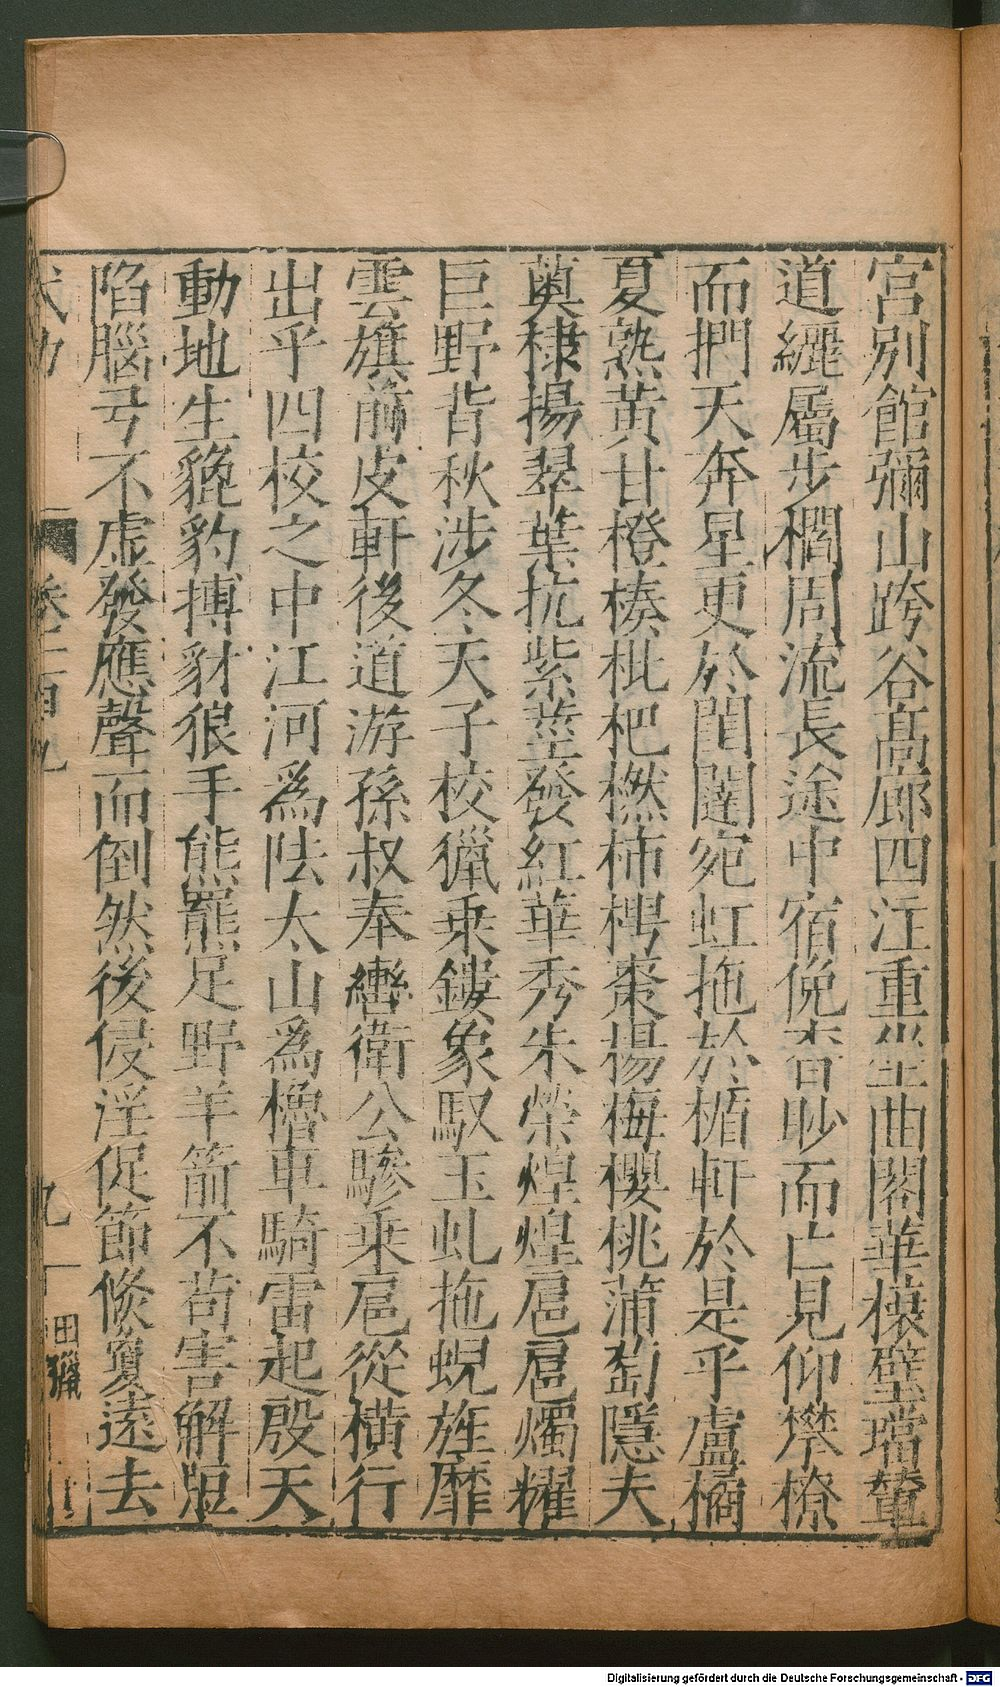 宮別館彌山跨谷高廊四注重坐曲閣華榱璧璫輦
道纚屬步櫩周流長途中宿俛杳眇而亡見仰攀橑
而捫天奔星更於閨闥宛虹拖於楯軒於是乎盧橘
夏熟黄甘橙楱枇杷橪柿樗棗楊梅櫻桃蒲萄隱夫
薁棣揚翠葉抗紫莖發紅華秀朱榮煌煌扈扈燭耀
巨野背秋涉冬天子校獵乗鏤象馭玉虬拖蜺旌靡
雲旗前皮軒後道游孫叔奉轡衛公驂乗扈從横行
出乎四校之中江河爲阹太山爲櫓車騎雷起殷天
動地生貔豹搏豺狼手熊羆足野羊箭不苟害解脰
陷腦弓不虛發應聲而倒然後侵淫促節倏敻遠去
武功
卷二百九
九
田獵
Digitalisierung gefördert durch die Deutsche Forschungsgemeinschaft - DFG